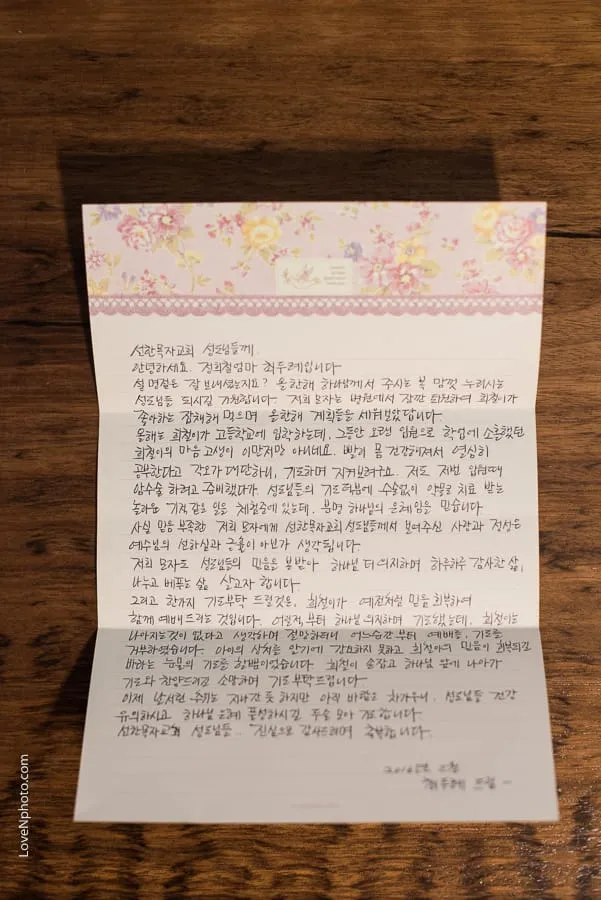 선한목자교회 성도님들께.
안녕하세요. 정희철엄마 최두례입니다
설 명절은 잘 보내셨는지요? 올한해 하나님께서 주시는 복 맘껏 누리시는
성도님들 되시길 기원합니다. 저희 모자는 병원에서 잠깐 퇴원하여 희철이가
좋아하는 잡채해 먹으며 올한해 계획들을 세워보았답니다.
올해는 희철이가 고등학교에 입학하는데, 그동안 오랜 입원으로 학업에 소홀했던
희철이의 마음고생이 이만저만 아니네요. 빨리 몸 건강해져서 열심히
공부한다고 각오가 대단하니, 기도하며 지켜보려구요. 저도 저번 입원때
암수술 하려고 준비했다가 성도님들의 기도덕분에 수술없이 약물로 치료 받는
놀라운 기적같은 일을 체험중에 있는데, 분명 하나님의 은혜임을 믿습니다
사실 믿음 부족한 저희 모자에게 선한목자교회 성도님들께서 보여주신 사랑과 정성은
예수님의 선하심과 긍휼이 아닌가 생각됩니다.
저희 모자도 성도님들의 믿음을 본받아 하나님 더 의지하며 하루하루 감사한 삶,
나누고 베푸는 삶 살고자 합니다.
그리고 한가지 기도부탁 드릴것은, 희철이가 예전처럼 믿음 회복하여
함께 예배드리는 것입니다. 어릴적부터 하나님 의지하며 기도했는데, 희철이는
나아지는것이 없다고 생각하며 절망하더니 어느순간부터 예배를, 기도를
거부하였습니다. 아이의 상처를 알기에 강요하지 못하고 희철이의 믿음이 회복되길
바라는 눈물의 기도를 할뿐이었습니다. 희철이 손잡고 하나님 앞에 나아가
기도와 찬양드리길 소망하며 기도부탁드립니다.
이제 남서린 추위는 지나간 듯 하지만 아직 바람은 차가우니, 성도님들 건강
유의하시고 하나님 은혜 풍성하시길 두손 모아 기도합니다.
선한목자교회 성도님들.. 진심으로 감사드리며 축복합니다.
2016년
최두례 드림-
LoveNphoto.com